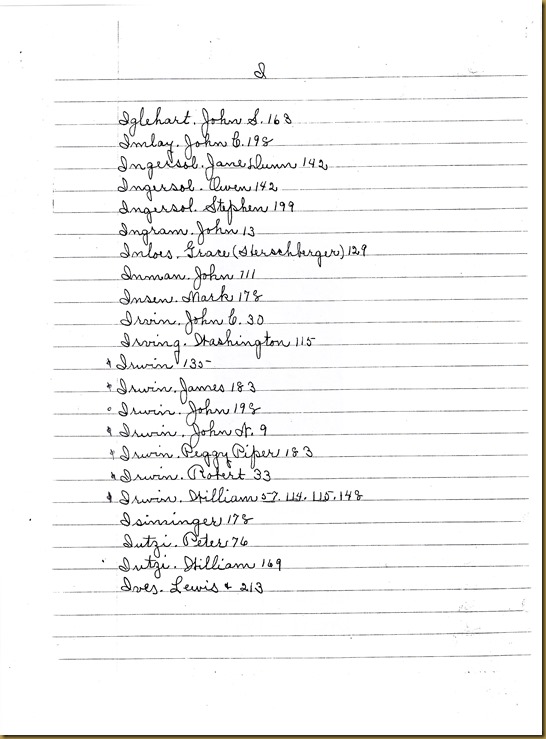 I
Iglehart. John S. 163
Imlay. John C. 198
Ingersol. Jane Dunn 142
Ingersol. Owen 142
Ingersol. Stephen 199
Ingram. John 13
Inloes. Grace (Herschberger) 129
Inman. John 711
Insen. Mark 178
Irvin. John C. 30
Irving. Washington 115
* Irwin 135
* Irwin. James 183
Irwin. John 198
* Irwin. John H. 9
* Irwin. Peggy Piper 183
* Irwin. Robert 33
* Irwin. William 57. 114. 115. 148
Isiminger 178
Iutzi. Peter 76
Iutzi. William 169
Ives. Lewis & 213